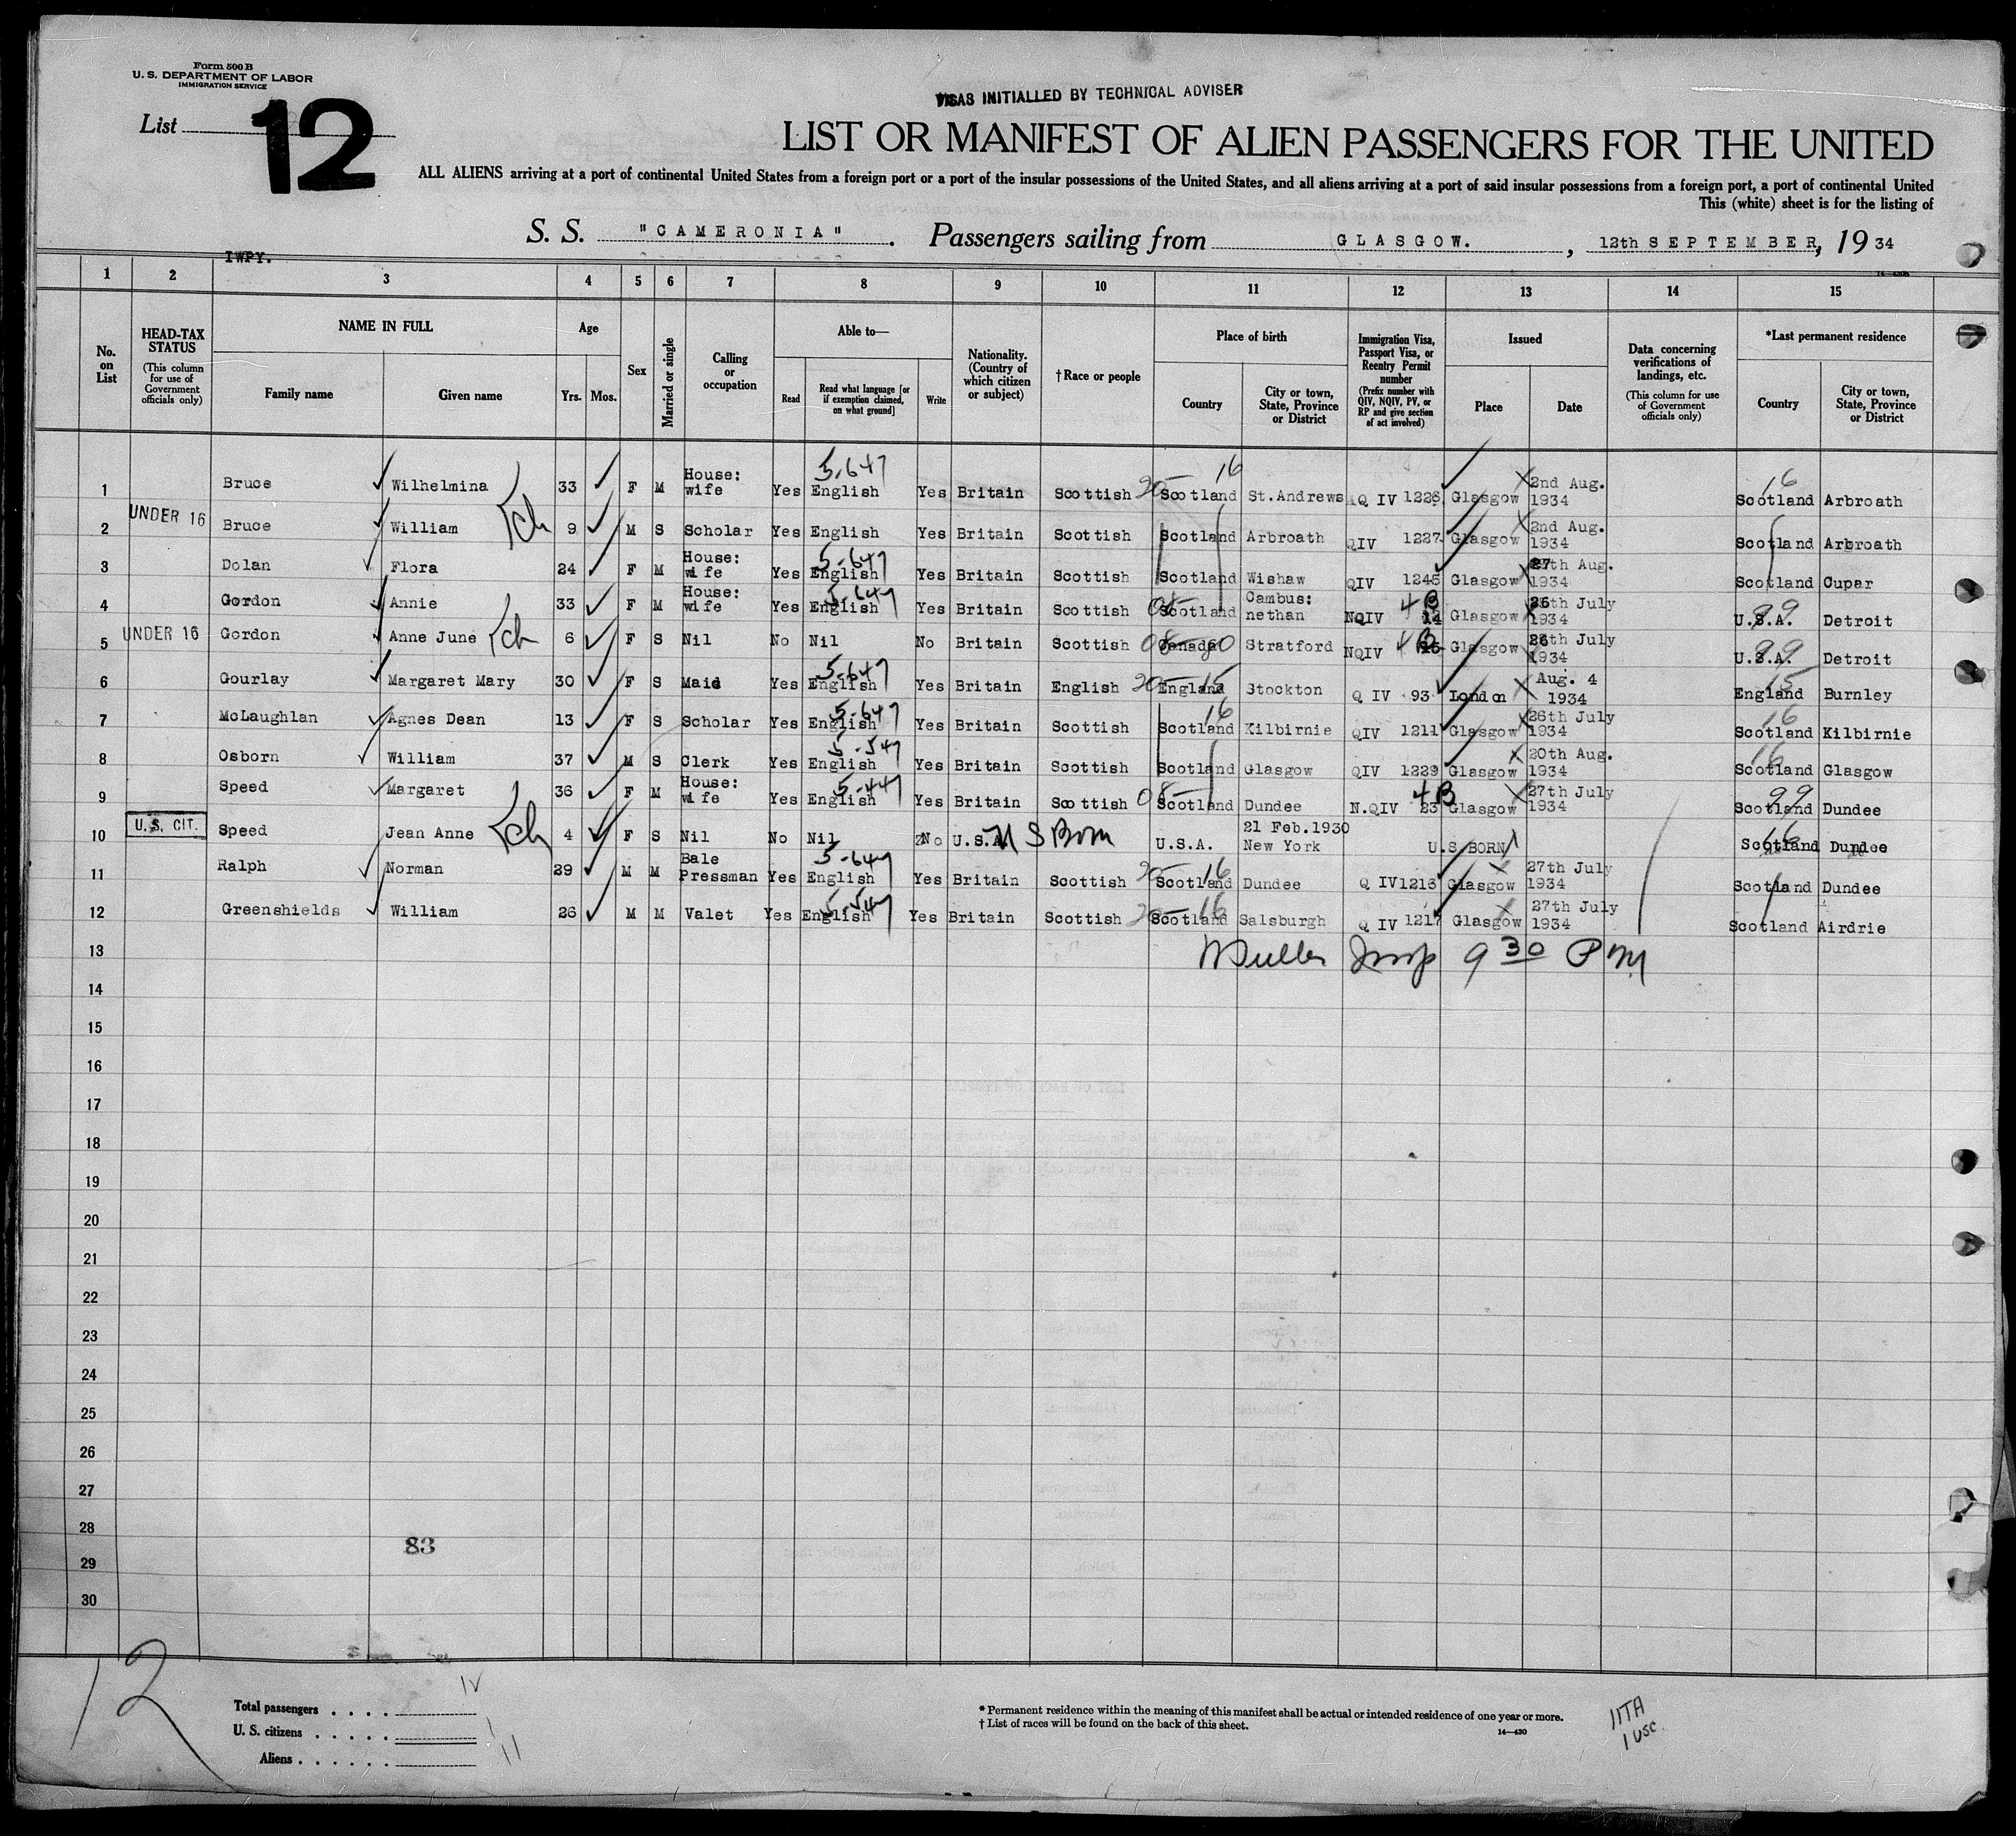 Form 500 B
U. S. DEPARTMENT OF LABOR
IMMIGRATION SERVICE
List 12
VISAS INITIALLED BY TECHNICAL ADVISER
LIST OR MANIFEST OF ALIEN PASSENGERS FOR THE UNITED
ALL ALIENS arriving at a port of continental United States from a foreign port or a port of the insular possessions of the United States, and all aliens arriving at a port of said insular possessions from a foreign port, a port of continental United
This (white) sheet is for the listing of
S. S. "CAMERONIA". Passengers sailing from GLASGOW., 12th SEPTEMBER, 1934
IWPY.
1 2 3 4 5 6 7 8 9 10 11 12 13 14 15
No. on List
HEAD-TAX STATUS (This column for use of Government officials only)
NAME IN FULL Family name Given name
Age Yrs. Mos.
Sex
Married or single
Calling or occupation
Able to— Read Read what language [or if exemption claimed, on what ground] Write
Nationality. (Country of which citizen or subject)
†Race or people
Place of birth Country City or town, State, Province or District
Immigration Visa, Passport Visa, or Reentry Permit number (Prefix number with QIV, NQIV, PV, or RP and give section of act involved)
Issued Place Date
Data concerning verifications of landings, etc. (This column for use of Government officials only)
*Last permanent residence Country City or town, State, Province or District
1 Bruce Wilhelmina 33 F M House: wife Yes English 5-647 Yes Britain Scottish 20- Scotland 16 St.Andrews Q IV 1226 Glasgow 2nd Aug. 1934 Scotland 16 Arbroath
2 UNDER 16 Bruce William ch 9 M S Scholar Yes English Yes Britain Scottish Scotland Arbroath QIV 1227 Glasgow 2nd Aug. 1934 Scotland Arbroath
3 Dolan Flora 24 F M House: wife Yes English 5-647 Yes Britain Scottish Scotland Wishaw QIV 1245 Glasgow 27th Aug. 1934 Scotland Cupar
4 Gordon Annie 33 F M House: wife Yes English 5-647 Yes Britain Scottish 08- Scotland Cambus: nethan NQIV 4B 14 Glasgow 26th July 1934 U.S.A. 99 Detroit
5 UNDER 16 Gordon Anne June ch 6 F S Nil No Nil No Britain Scottish 08- Canada Stratford NQIV 4B 15 Glasgow 26th July 1934 U.S.A. 99 Detroit
6 Gourlay Margaret Mary 30 F S Maid Yes English 5-647 Yes Britain English 20- England 15 Stockton Q IV 93 London Aug. 4 1934 England 15 Burnley
7 McLaughlan Agnes Dean 13 F S Scholar Yes English 5-647 Yes Britain Scottish Scotland 16 Kilbirnie QIV 1211 Glasgow 26th July 1934 Scotland 16 Kilbirnie
8 Osborn William 37 M S Clerk Yes English 5-547 Yes Britain Scottish Scotland Glasgow QIV 1229 Glasgow 20th Aug. 1934 Scotland 16 Glasgow
9 Speed Margaret 36 F M House: wife Yes English 5-447 Yes Britain Scottish 08- Scotland Dundee N.QIV 4B 23 Glasgow 27th July 1934 Scotland 99 Dundee
10 U.S. CIT. Speed Jean Anne ch 4 F S Nil No Nil No U.S.A. U S Born U.S.A. 21 Feb.1930 New York U.S. BORN Scotland 16 Dundee
11 Ralph Norman 29 M M Bale Pressman Yes English 5-647 Yes Britain Scottish 20- Scotland 16 Dundee Q IV 1213 Glasgow 27th July 1934 Scotland Dundee
12 Greenshields William 26 M M Valet Yes English 5-547 Yes Britain Scottish 20- Scotland 16 Salsburgh Q IV 1217 Glasgow 27th July 1934 Scotland Airdrie
13 Insp 9 30 PM
14
15
16
17
18
19
20
21
22
23
24
25
26
27
28
83
29
30
12
Total passengers . . . .
U. S. citizens . . . . . 1
Aliens . . . . . . 11
* Permanent residence within the meaning of this manifest shall be actual or intended residence of one year or more.
† List of races will be found on the back of this sheet.
14—430
11TA
1 USC